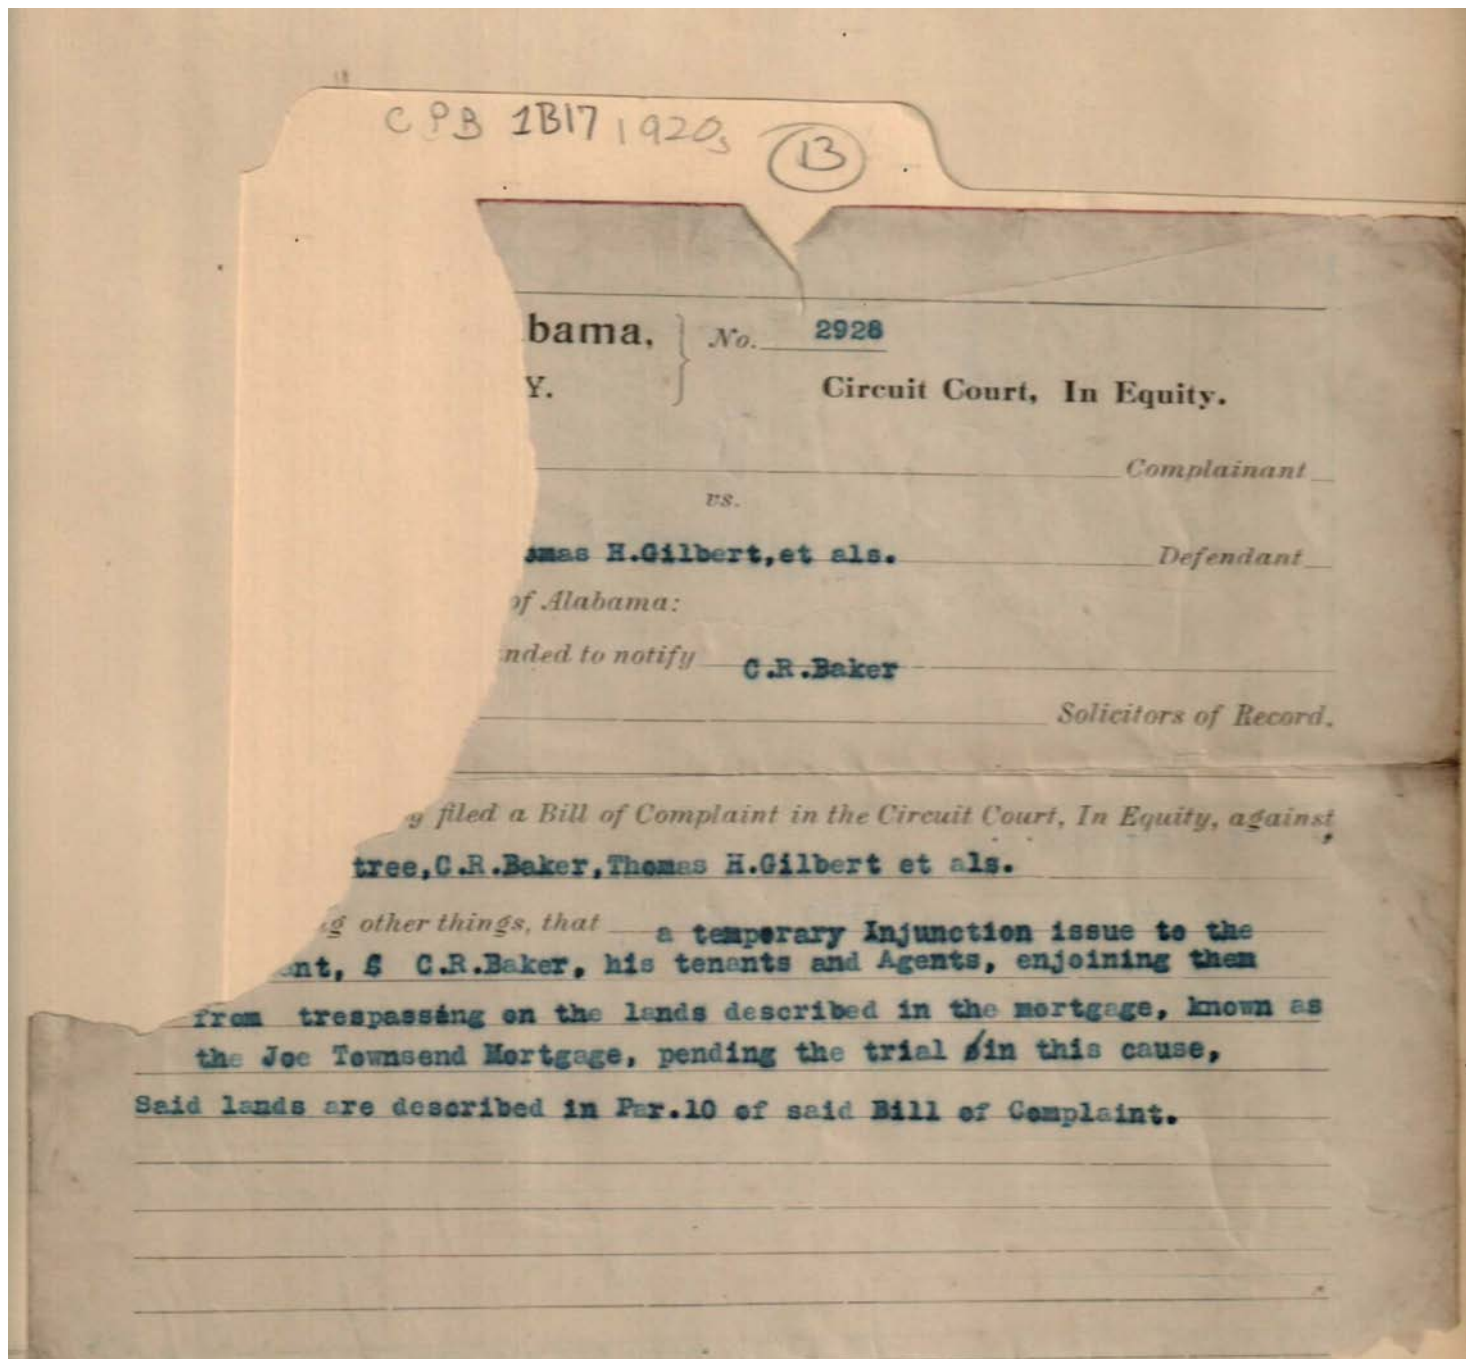 CPB 1B17 1920s 13
bama, No. 2928
Y. Circuit Court, In Equity.
Complainant
vs.
omas H.Gilbert,et als. Defendant
of Alabama:
nded to notify C.R.Baker
Solicitors of Record.
g filed a Bill of Complaint in the Circuit Court, In Equity, against
tree,C.R.Baker,Thomas H.Gilbert et als.
g other things, that a temporary Injunction issue to the
nt, C.R.Baker, his tenants and Agents, enjoining them
from trespassing on the lands described in the mortgage, known as
the Joe Townsend Mortgage, pending the trial in this cause,
Said lands are described in Par.10 of said Bill of Complaint.